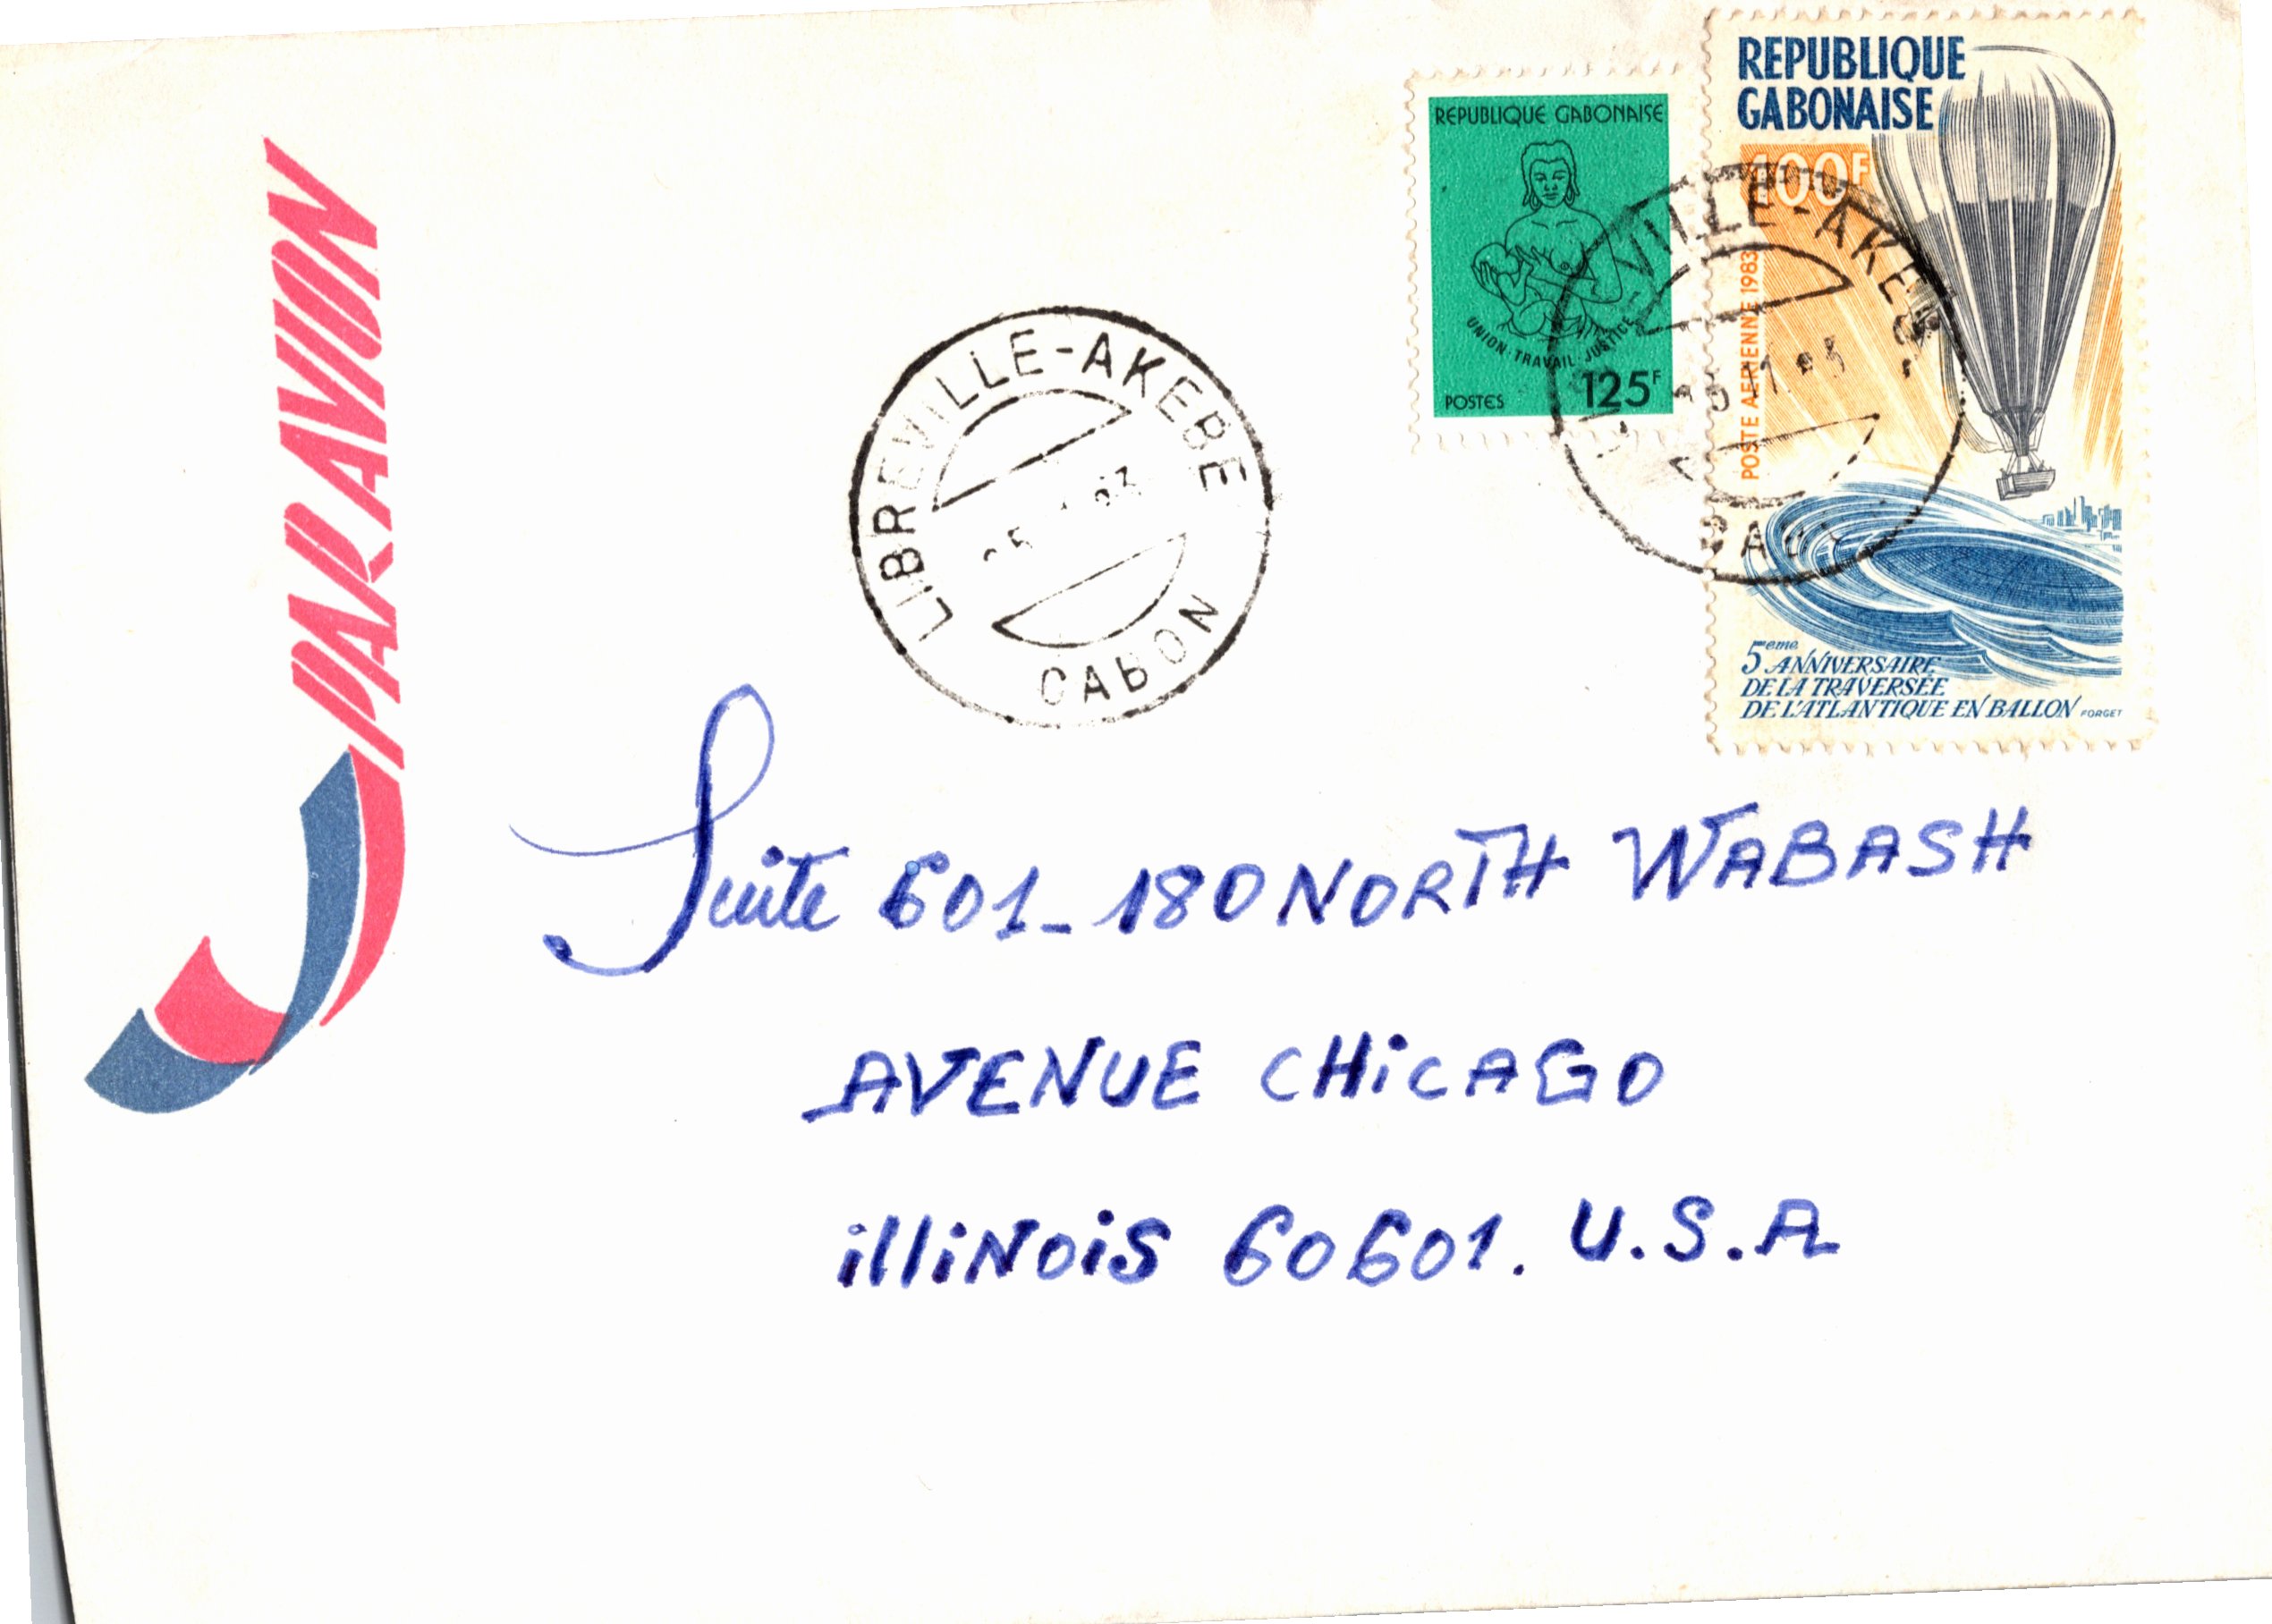 PAR AVION
REPUBLIQUE GABONAISE
UNION · TRAVAIL · JUSTICE
POSTES
125F
REPUBLIQUE
GABONAISE
100F
POSTE AERIENNE 1983
5eme ANNIVERSAIRE
DE LA TRAVERSÉE
DE L'ATLANTIQUE EN BALLON FORGET
VILLE-AKEB
LIBREVILLE-AKEBE
GABON
Suite 601_180 NORTH WABASH
AVENUE CHiCAGO
illiNOiS 60601. U.S.A